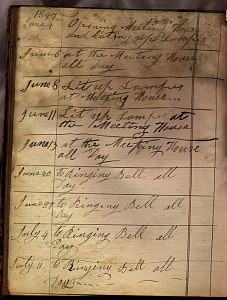 1847
June 4 Opening Meeting House
and Lit up Lamps
June 6 at the Meeting House
all Day
June 8 Lit up Lamps
at Meeting House
June 11 Lit up Lamps at
the Meeting House
June 13 at the Meeting House
all Day
June 20 to Ringing Bell all
Day
June 27 to Ringing Bell all
Day
July 4 to Ringing Bell all
Day
July 11 to Ringing Bell all
Day